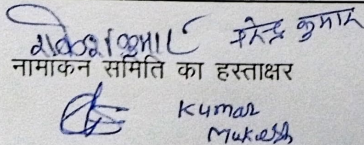 राकेश कुमार नरेन्द्र कुमार
नामांकन समिति का हस्ताक्षर
Kumar
Mukesh